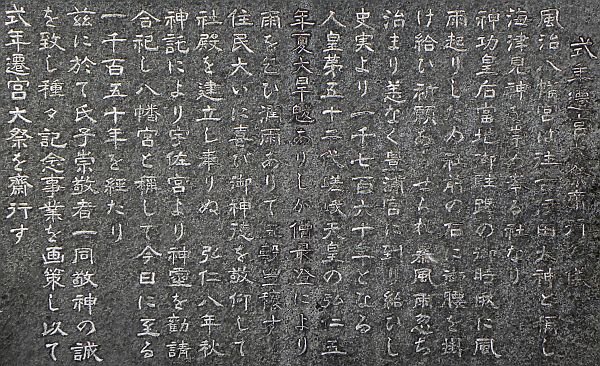 式年遷宮 斎行
風治八幡宮は往古 田大神と稱し
海津見神を崇め奉る社なり
神功皇后當地御駐蹕の御時俄に風
雨起りしため社前の石に御腰を掛
け給い祈願あらせられ暴風雨忽ち
治まり恙なく豊浦宮に到り給いし
史実より一千七百六十年となる
人皇第五十二代嵯峨天皇の弘仁五
年夏大旱魃ありしが僧最澄により
雨を乞ひ 雨ありて五穀豊穣す
住民大いに喜び御神徳を敬仰して
社殿を建立し奉りぬ 弘仁八年秋
神託により宇佐宮より神霊を勧請
合祀し八幡宮と稱して今日に至る
一千百五十年を経たり
茲に於て氏子崇敬者一同敬神の誠
を致し種々記念事業を画策し以て
式年遷宮大祭を齋行す